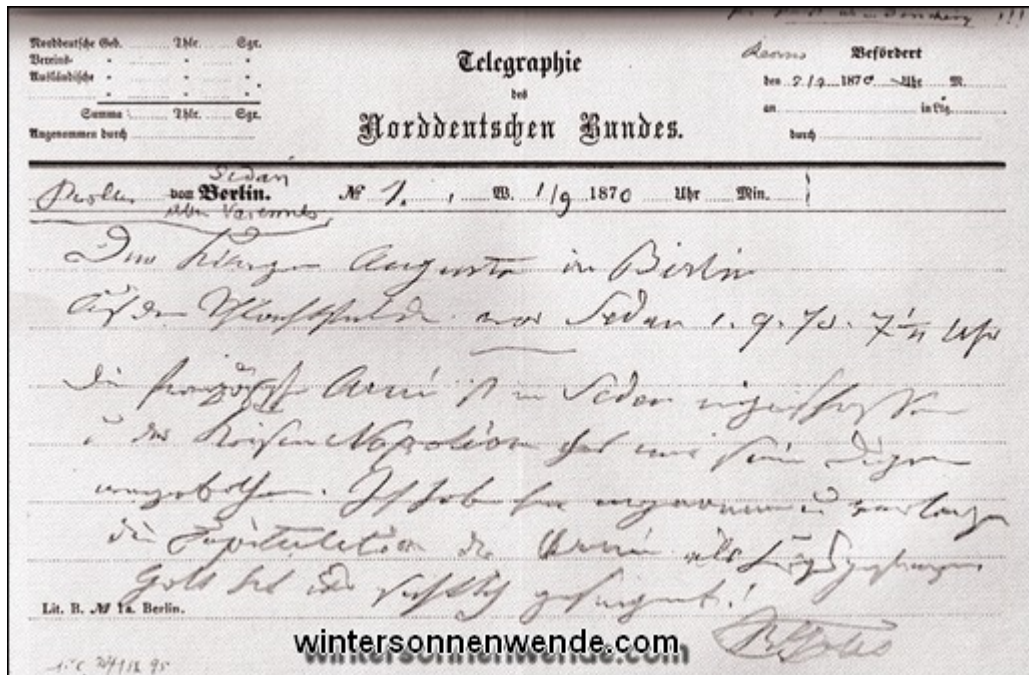 !!!
Norddeutsche Geb. Thlr. Sgr.
Vereins- " "
Ausländische " "
Summa Thlr. Sgr.
Angenommen durch
Telegraphie
des
Norddeutschen Bundes.
Befördert
den 2/9 1870 Uhr M.
an in Ltg.
durch
von Berlin. Sedan
über Varennes
№ 1. W. 1/9 1870 Uhr Min.
Der Königin Augusta in Berlin
Auf dem Schlachtfelde vor Sedan 1. 9. 70. Uhr
Die französische Armee ist in Sedan eingeschlossen
u der Kaiser Napoléon hat mir seinen Degen
angebothen. Ich habe ihn angenommen u verlange
die Capitulation der Armee als Kriegsgefangene.
Gott hat uns sichtlich gesegnet!
Lit. B. № 1a. Berlin.
wintersonnenwende.com